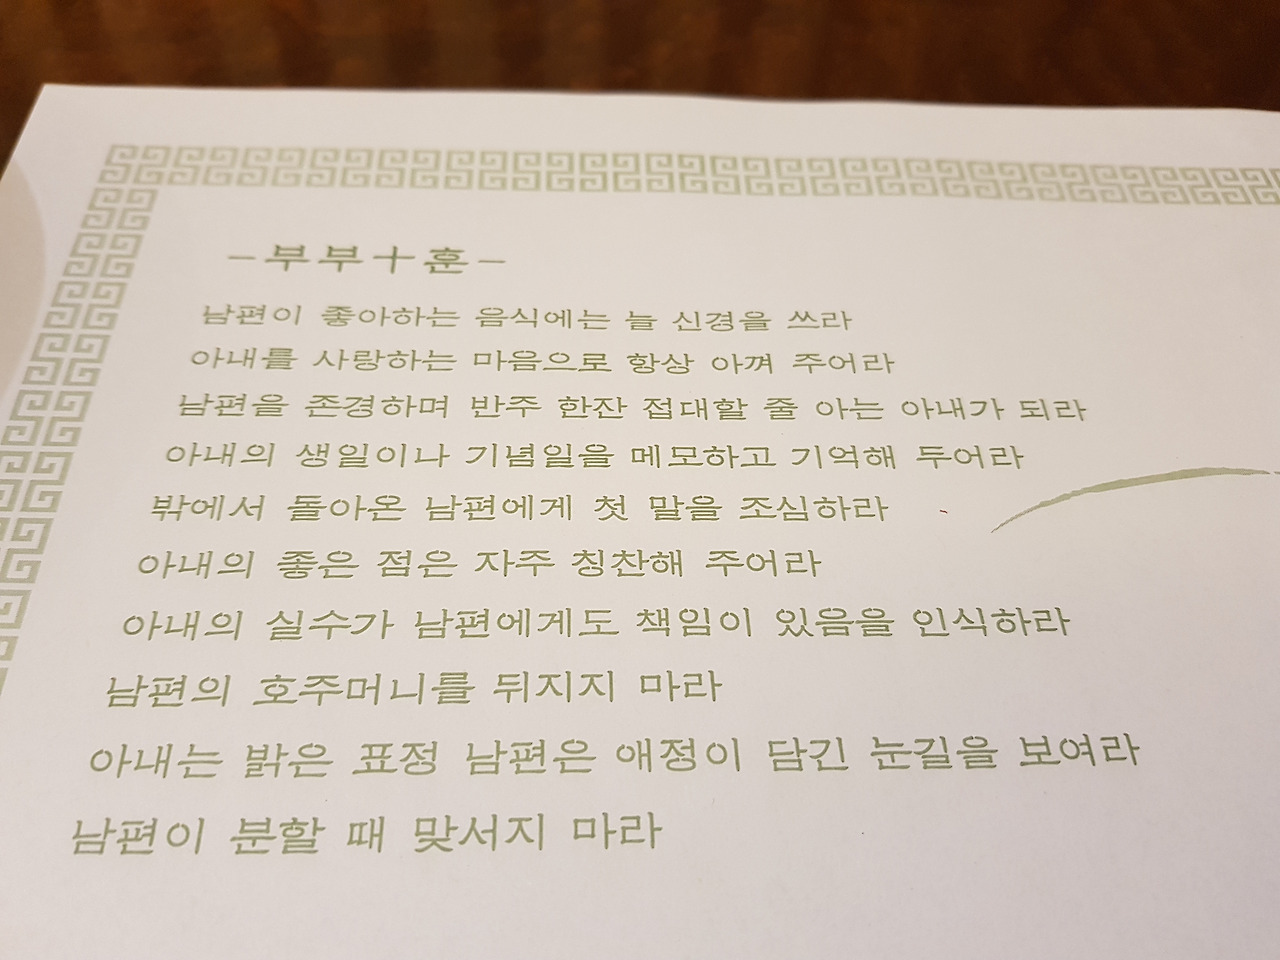 -부부十훈-
남편이 좋아하는 음식에는 늘 신경을 쓰라
아내를 사랑하는 마음으로 항상 아껴 주어라
남편을 존경하며 반주 한잔 접대할 줄 아는 아내가 되라
아내의 생일이나 기념일을 메모하고 기억해 두어라
밖에서 돌아온 남편에게 첫 말을 조심하라
아내의 좋은 점은 자주 칭찬해 주어라
아내의 실수가 남편에게도 책임이 있음을 인식하라
남편의 호주머니를 뒤지지 마라
아내는 밝은 표정 남편은 애정이 담긴 눈길을 보여라
남편이 분할 때 맞서지 마라